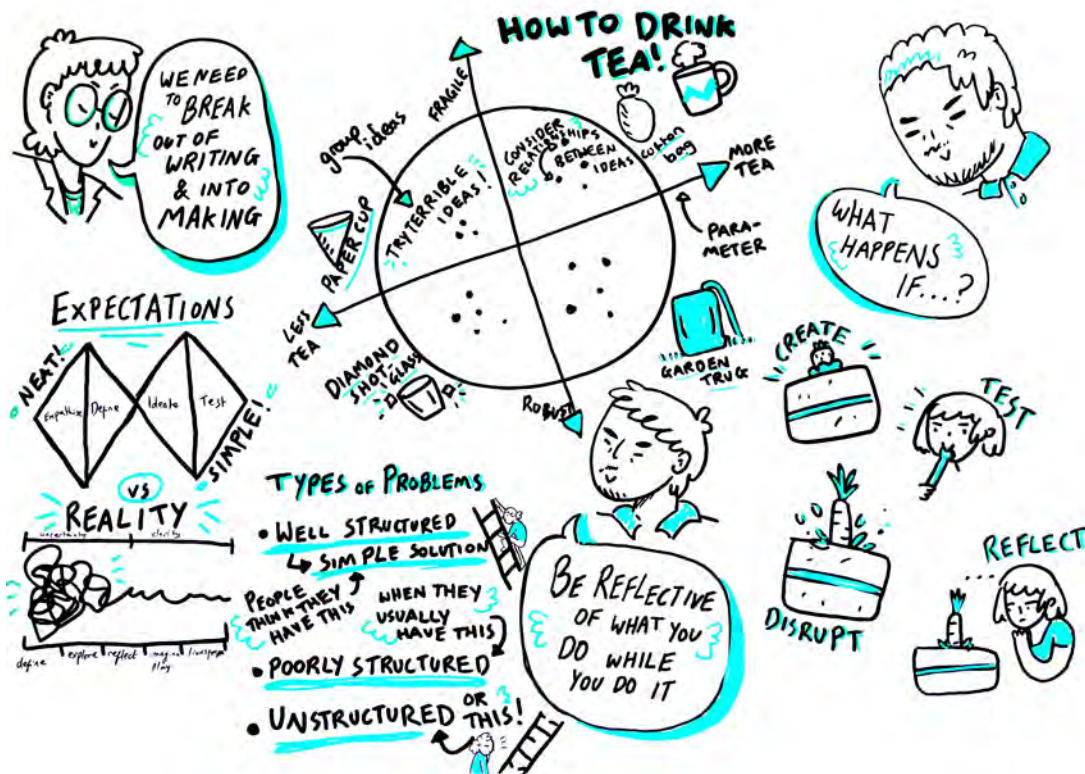 WE NEED
TO BREAK
OUT OF
WRITING
& INTO
MAKING
HOW TO DRINK
TEA!
FRAGILE
group ideas
CONSIDER
RELATIONSHIPS
BETWEEN
IDEAS
cotton
bag
MORE
TEA
TRY TERRIBLE
IDEAS!
PAPER CUP
PARA-
METER
LESS
TEA
DIAMOND
SHOT-
GLASS
GARDEN
TRUG
ROBUST
WHAT
HAPPENS
IF...?
EXPECTATIONS
NEAT!
Empathise
Define
Ideate
Test
SIMPLE!
VS
REALITY
uncertainty
clarity
define
explore
reflect
play
TYPES OF PROBLEMS
• WELL STRUCTURED
SIMPLE SOLUTION
PEOPLE
THINK THEY
HAVE THIS
WHEN THEY
USUALLY
HAVE THIS
• POORLY STRUCTURED
• UNSTRUCTURED OR
THIS!
BE REFLECTIVE
OF WHAT YOU
DO WHILE
YOU DO IT
CREATE
TEST
DISRUPT
REFLECT